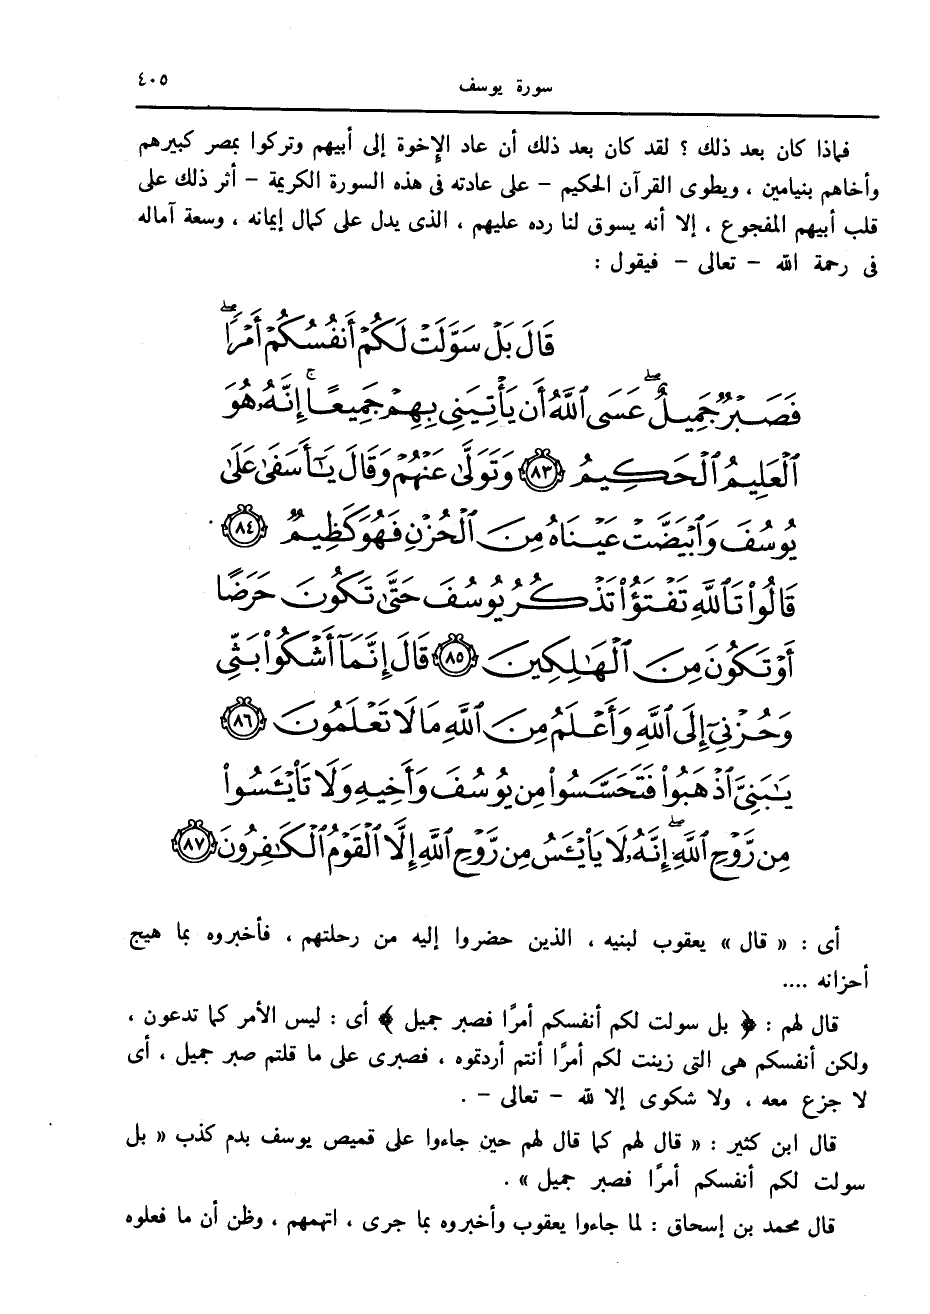 سورة يوسف
٤٠٥
فماذا كان بعد ذلك ؟ لقد كان بعد ذلك أن عاد الإخوة إلى أبيهم وتركوا بمصر كبيرهم
وأخاهم بنيامين ، ويطوى القرآن الحكيم – على عادته فى هذه السورة الكريمة – أثر ذلك على
قلب أبيهم المفجوع ، إلا أنه يسوق لنا رده عليهم ، الذى يدل على كمال إيمانه ، وسعة آماله
فى رحمة الله – تعالى – فيقول :
قَالَ بَلْ سَوَّلَتْ لَكُمْ أَنفُسُكُمْ أَمْرًاۖ
فَصَبْرٌ جَمِيلٌۖ عَسَى ٱللَّهُ أَن يَأْتِيَنِى بِهِمْ جَمِيعًاۚ إِنَّهُۥ هُوَ
ٱلْعَلِيمُ ٱلْحَكِيمُ ٨٣ وَتَوَلَّىٰ عَنْهُمْ وَقَالَ يَـٰٓأَسَفَىٰ عَلَىٰ
يُوسُفَ وَٱبْيَضَّتْ عَيْنَاهُ مِنَ ٱلْحُزْنِ فَهُوَ كَظِيمٌ ٨٤
قَالُوا۟ تَٱللَّهِ تَفْتَؤُا۟ تَذْكُرُ يُوسُفَ حَتَّىٰ تَكُونَ حَرَضًا
أَوْ تَكُونَ مِنَ ٱلْهَـٰلِكِينَ ٨٥ قَالَ إِنَّمَآ أَشْكُوا۟ بَثِّى
وَحُزْنِىٓ إِلَى ٱللَّهِ وَأَعْلَمُ مِنَ ٱللَّهِ مَا لَا تَعْلَمُونَ ٨٦
يَـٰبَنِىَّ ٱذْهَبُوا۟ فَتَحَسَّسُوا۟ مِن يُوسُفَ وَأَخِيهِ وَلَا تَا۟يْـَٔسُوا۟
مِن رَّوْحِ ٱللَّهِۖ إِنَّهُۥ لَا يَا۟يْـَٔسُ مِن رَّوْحِ ٱللَّهِ إِلَّا ٱلْقَوْمُ ٱلْكَـٰفِرُونَ ٨٧
أى : « قال » يعقوب لبنيه ، الذين حضروا إليه من رحلتهم ، فأخبروه بما هيج
أحزانه ....
قال لهم : ﴿ بل سولت لكم أنفسكم أمرًا فصبر جميل ﴾ أى : ليس الأمر كما تدعون ،
ولكن أنفسكم هى التى زينت لكم أمرًا أنتم أردتموه ، فصبرى على ما قلتم صبر جميل ، أى
لا جزع معه ، ولا شكوى إلا لله – تعالى – .
قال ابن كثير : « قال لهم كما قال لهم حين جاءوا على قميص يوسف بدم كذب « بل
سولت لكم أنفسكم أمرًا فصبر جميل » .
قال محمد بن إسحاق : لما جاءوا يعقوب وأخبروه بما جرى ، اتهمهم ، وظن أن ما فعلوه